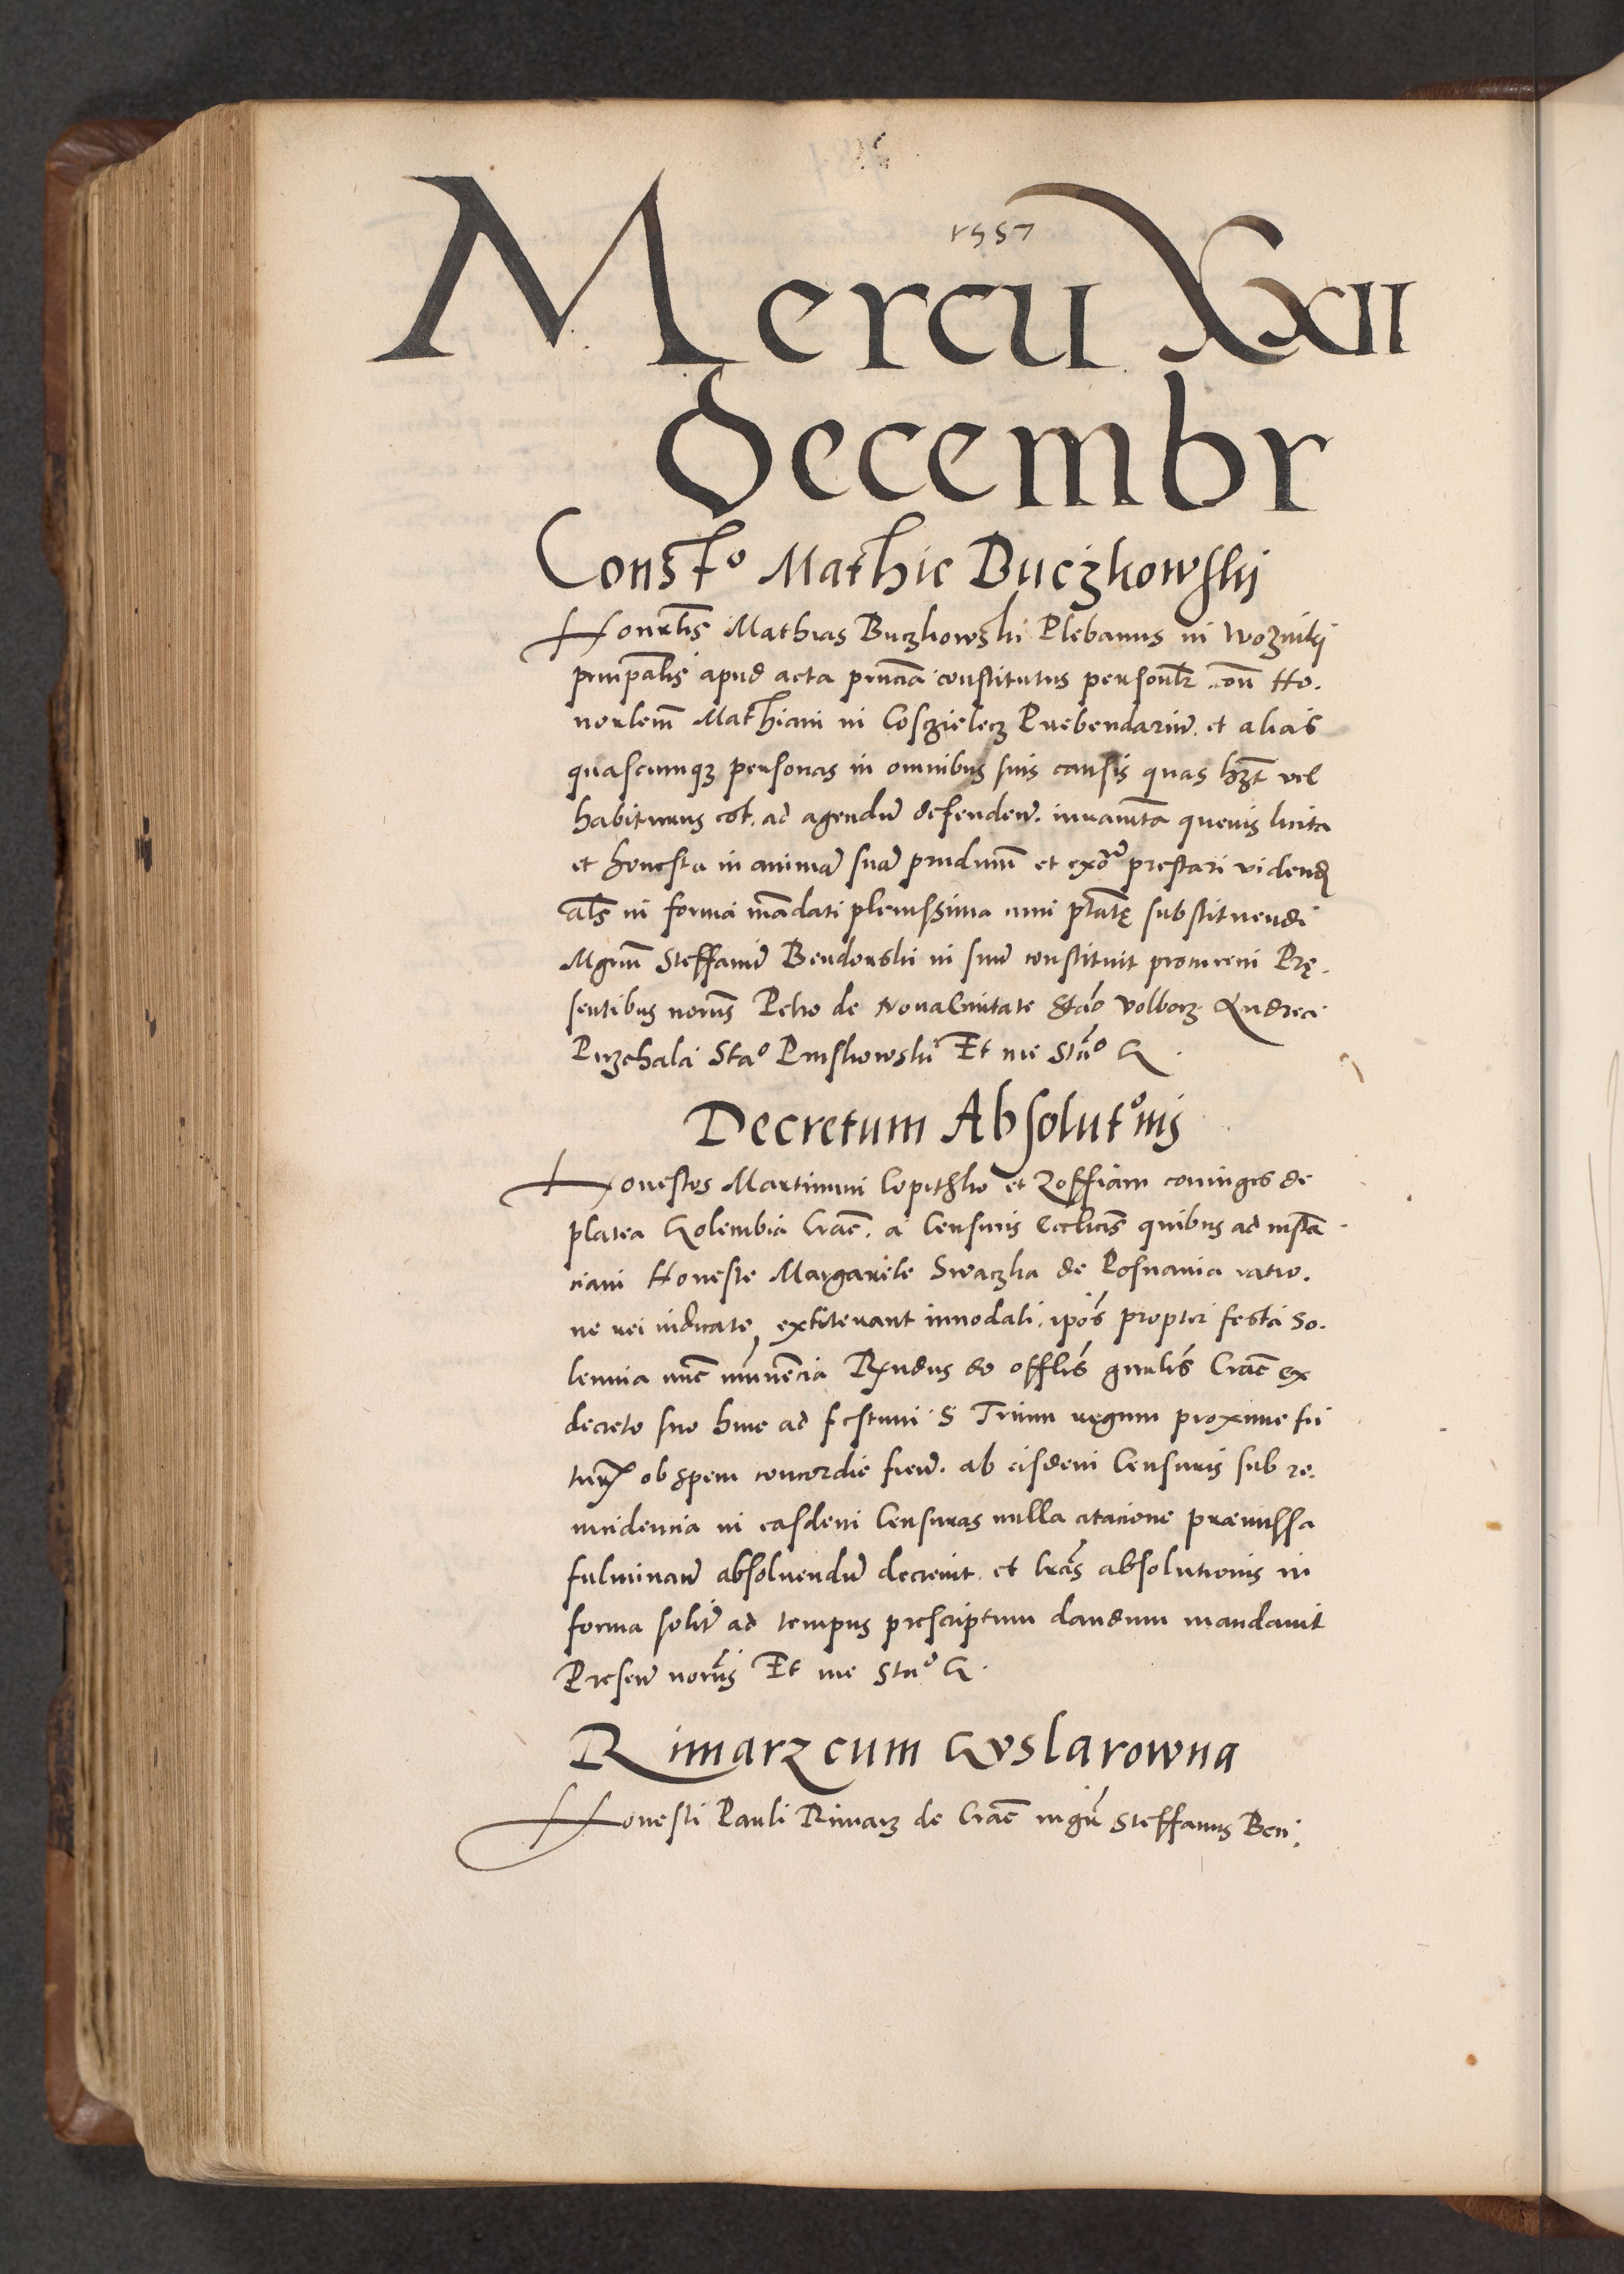 1557
Mercu XXII
decembr
Constº Mathie Buczkowskij
Honrlis Mathias Buczkowski Plebanus in Woznikij
prinpalis apud acta prncia constitutus personlr oni Ho.
norlem Mathiam in Cosczielecz Prebendariu. et alias
quascumq3 personas in omnibus suis causis quas h3t vel
habiturus est. ad agendu defenden. iuramta quevis licita
et honesta in anima sua prndum et exoe prestari vidend
als in forma mandati plenissima cum ptate substituendi
Mgrum Steffanu Bendonski in suu constituit procurem Pre.
sentibus norus Petro de Nova Civitate Stao Volborz Andrea
Przchala Staº Pruskowski Et me Staº G
Decretum Absolutºnis
Honestos Martinum Copithko et Zoffiam coniuges de
platea Golembia Crac. a Censuris Ecclicis quibus ad insta
ciam Honeste Margarete Swaczka de Posnania ratio.
ne rei iudicate extiterant innodati. ipos propter festa So.
lennia nunc imminencia Rndus do offlis gnrlis Crac ex
decreto suo hinc ad festum S Trium regum proxime fu
tur ob spem concordie fien. ab eisdem Censuris sub re.
incidencia in easdem Censuras nulla citacione præmissa
fulminan absolvendu decrevit. et lras absolutionis in
forma solit ad tempus prescriptum dandum mandavit
Presen norus Et me Staº G.
Rimarz cum Goslarowna
Honesti Pauli Rimarz de Crac mgr Steffanus Ben.